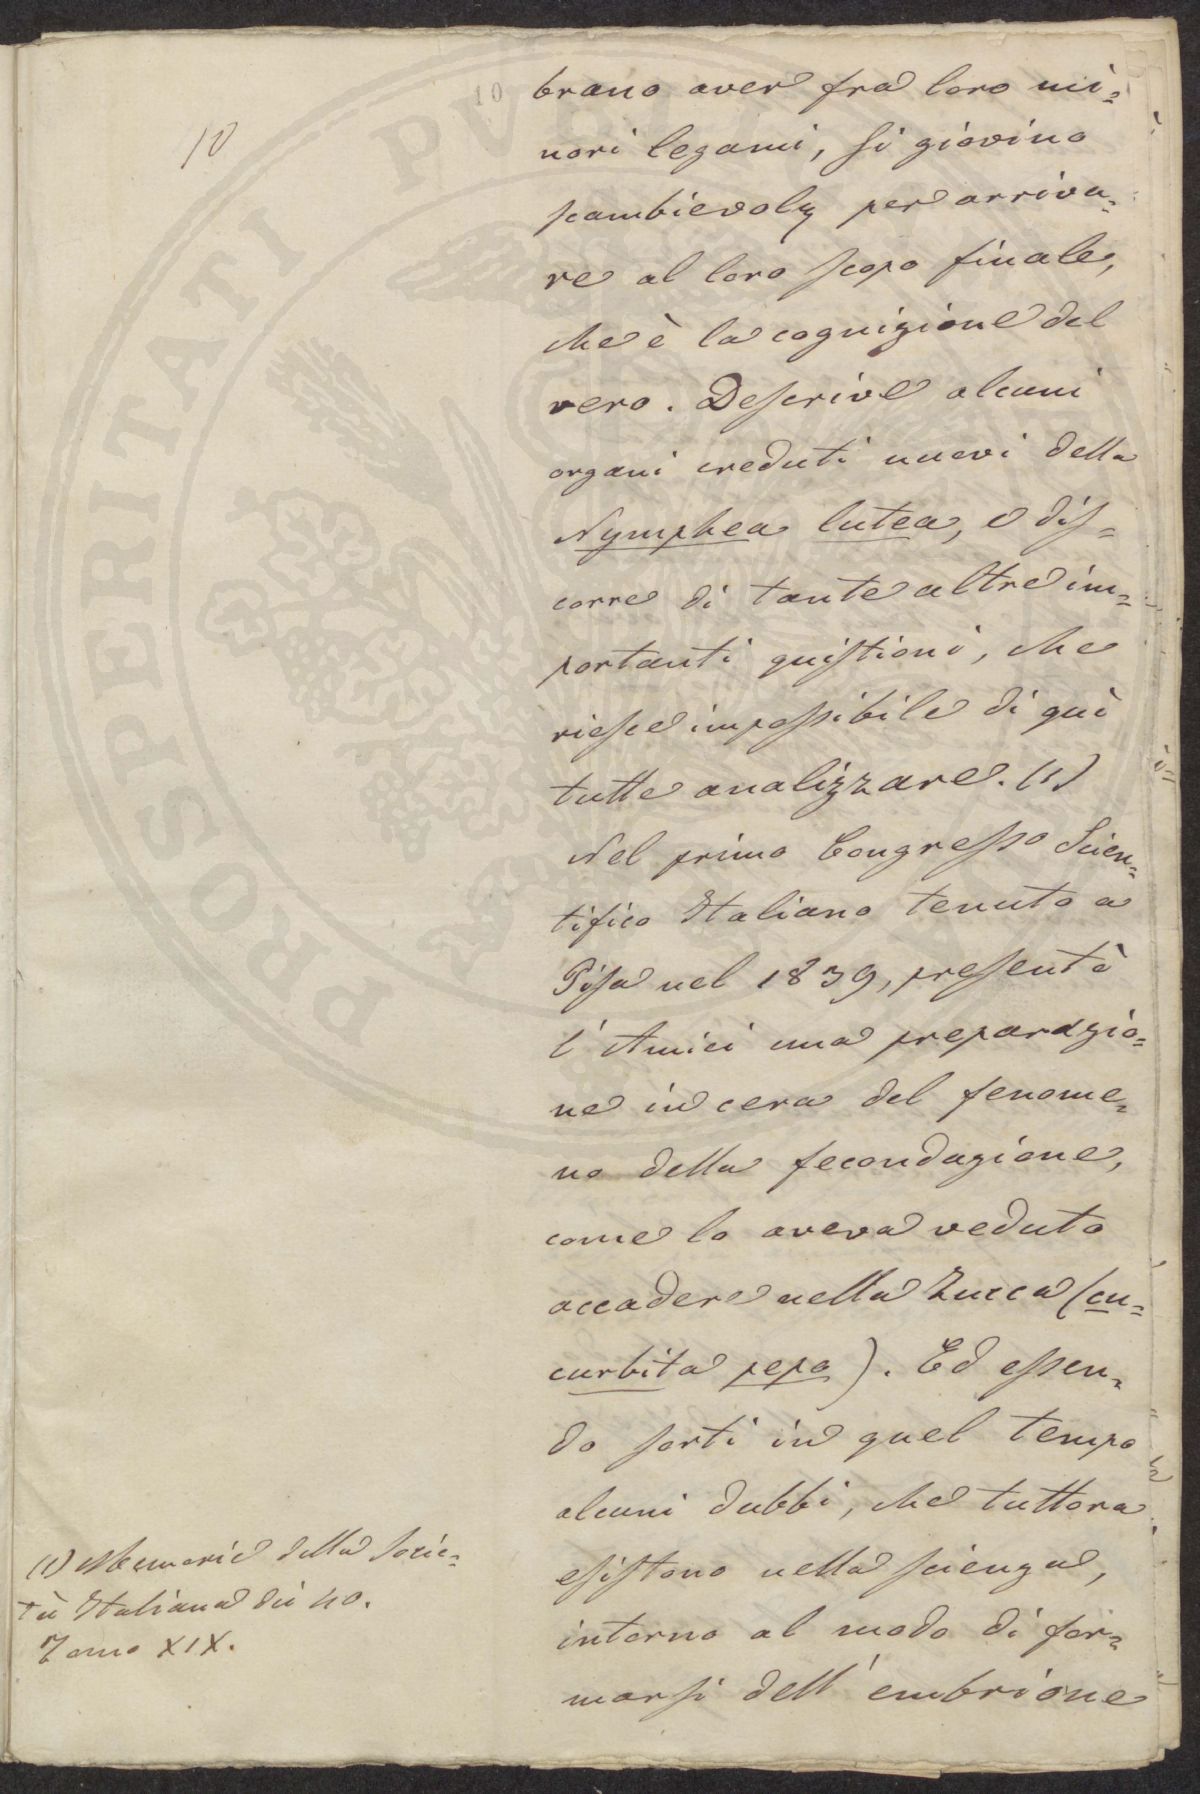 10
10
brano aver fra loro mi=
nori legami, si giovino
scambievoly per arriva=
re al loro scopo finale,
che è la cognizione del
vero. Descrive alcuni
organi creduti nuovi della
Nymphea lutea, e dis=
corre di tante altre im=
portanti quistioni, che
riesce impossibile di quì
tutte analizzare. (1)
Nel primo Congresso Scien=
tifico Italiano tenuto a
Pisa nel 1839, presentò
l'Amici una preparazio=
ne in cera del fenome=
no della fecondazione,
come lo aveva veduto
accadere nella Zucca (cu=
curbita pepo). Ed essen=
do sorti in quel tempo
alcuni dubbi, che tuttora
esistono nella scienza,
intorno al modo di for=
marsi dell'embrione
(1) Memorie della Socie=
tà Italiana dei 40.
Tomo XIX.
PROSPERITATI PVBLICAE